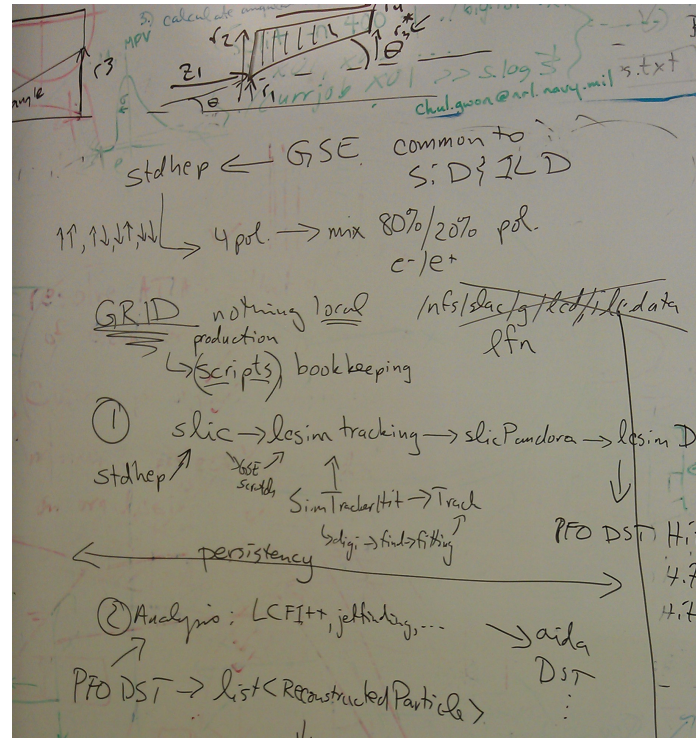 3. calculate
MPV
r2
r3
r3
Z1
θ
r1
θ
currjob x01 >> s.log
s.txt
chul.gwon@nrl.navy.mil
stdhep ← GSE common to
SiD & ILD
↑↑, ↑↓, ↓↑, ↓↓ → 4 pol. → mix 80%/20% pol.
e-/e+
GRID nothing local
/nfs/slac/g/lcd/ilc/data
production
lfn
(scripts) bookkeeping
① slic → lcsim tracking → slicPandora → lcsim D
stdhep
GSE
scratch
SimTrackerHit → Track
digi → find → fitting
PFO DST Hit
persistency
4.7
Hit
② Analysis: LCFI++, jetfinding, ...
aida
DST
PFO DST → list<ReconstructedParticle>